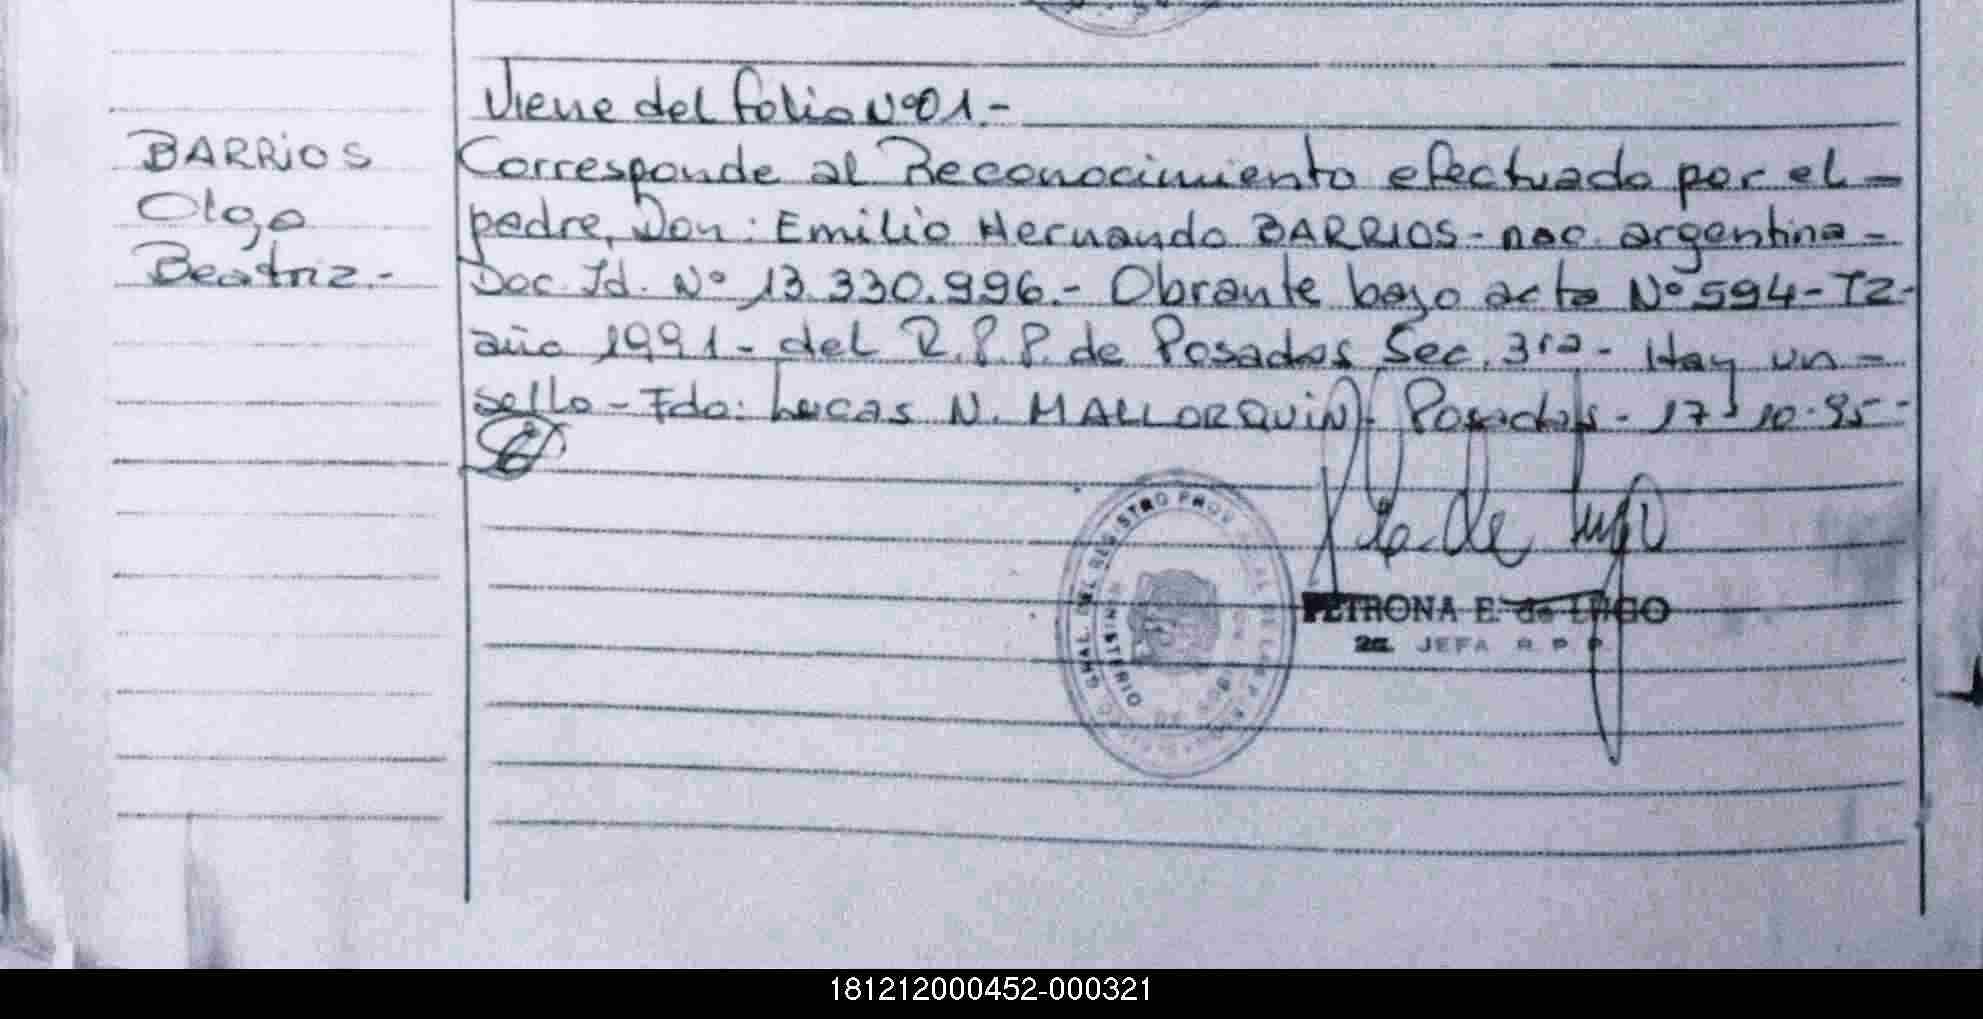 Viene del folio Nº01.-
BARRIOS
Olga
Beatriz.-
Corresponde al Reconocimiento efectuado por el -
padre, Don: Emilio Hernando BARRIOS - nac. argentina -
Doc. Id. Nº 13.330.996.- Obrante bajo acta Nº 594 - T2 -
año 1991 - del R.P.P. de Posadas Sec. 3ra - Hay un -
sello - Fdo: Lucas N. MALLORQUIN - Posadas - 17-10-95 -
GRAL. DEL REGISTRO PROV
PETRONA E. de LUGO
2a. JEFA R. P. P.
181212000452-000321